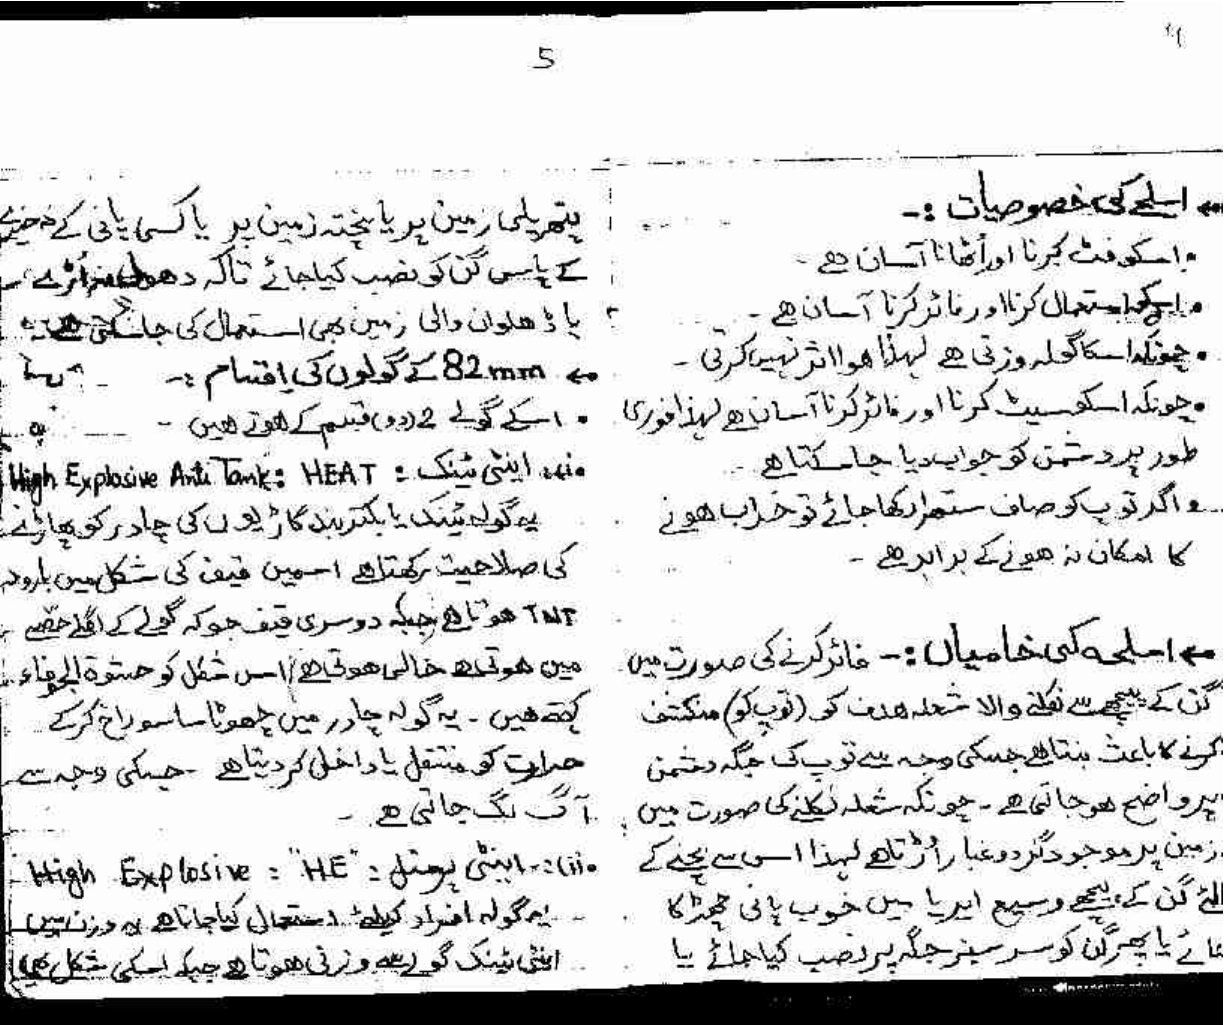 5
← اسلحے کی خصوصیات :-
• اسکو فٹ کرنا اور اُٹھانا آسان ھے -
• اسکو استعمال کرنا اور فائر کرنا آسان ھے -
• چونکہ اسکا گولہ وزنی ھے لہذا ھوا اثر نہیں کرتی -
• چونکہ اسکو سیٹ کرنا اور فائر کرنا آسان ھے لہذا فوری
طور پر دشمن کو جواب دیا جا سکتا ھے -
• اگر توپ کو صاف ستھرا رکھا جائے تو خراب ھونے
کا امکان نہ ھونے کے برابر ھے -
← اسلحہ کی خامیاں :- فائر کرنے کی صورت میں
گن کے پیچھے سے نکلنے والا شعلہ ھدف کو (توپ کو) منکشف
کرنے کا باعث بنتا ھے جسکی وجہ سے توپ کی جگہ دشمن
پر واضح ھو جاتی ھے - چونکہ شعلہ نکلنے کی صورت میں
زمین پر موجود گرد و غبار اُڑتا ھے لہذا اس سے بچنے کے
لئے گن کے پیچھے وسیع ایریا میں خوب پانی چھڑکا
جائے یا پھر گن کو سر سبز جگہ پر نصب کیا جائے یا
پتھریلی زمین پر یا پختہ زمین پر یا کسی پانی کے ذخیرے
کے پاس گن کو نصب کیا جائے تاکہ دھول نہ اُڑے
یا ڈھلوان والی زمین بھی استعمال کی جا سکتی ھے -
← 82mm کے گولوں کی اقسام :-
• اسکے گولے 2 (دو) قسم کے ھوتے ھیں -
(i) اینٹی ٹینک : High Explosive Anti Tank : HEAT
یہ گولہ ٹینک یا بکتر بند گاڑیوں کی چادر کو پھاڑنے
کی صلاحیت رکھتا ھے اسمیں قیف کی شکل میں بارود
TNT ھوتا ھے جبکہ دوسری قیف جو کہ گولے کے اگلے حصے
میں ھوتی ھے خالی ھوتی ھے / اس شکل کو حشوۃ الجوفاء
کہتے ھیں - یہ گولہ چادر میں چھوٹا سا سوراخ کر کے
حرارت کو منتقل یا داخل کر دیتا ھے - جسکی وجہ سے
آگ لگ جاتی ھے -
(ii) :- اینٹی پرسنل : "HE" : High Explosive
یہ گولہ افراد کیلئے استعمال کیا جاتا ھے یہ وزن میں
اینٹی ٹینک گولے سے وزنی ھوتا ھے جبکہ اسکی شکل بھی